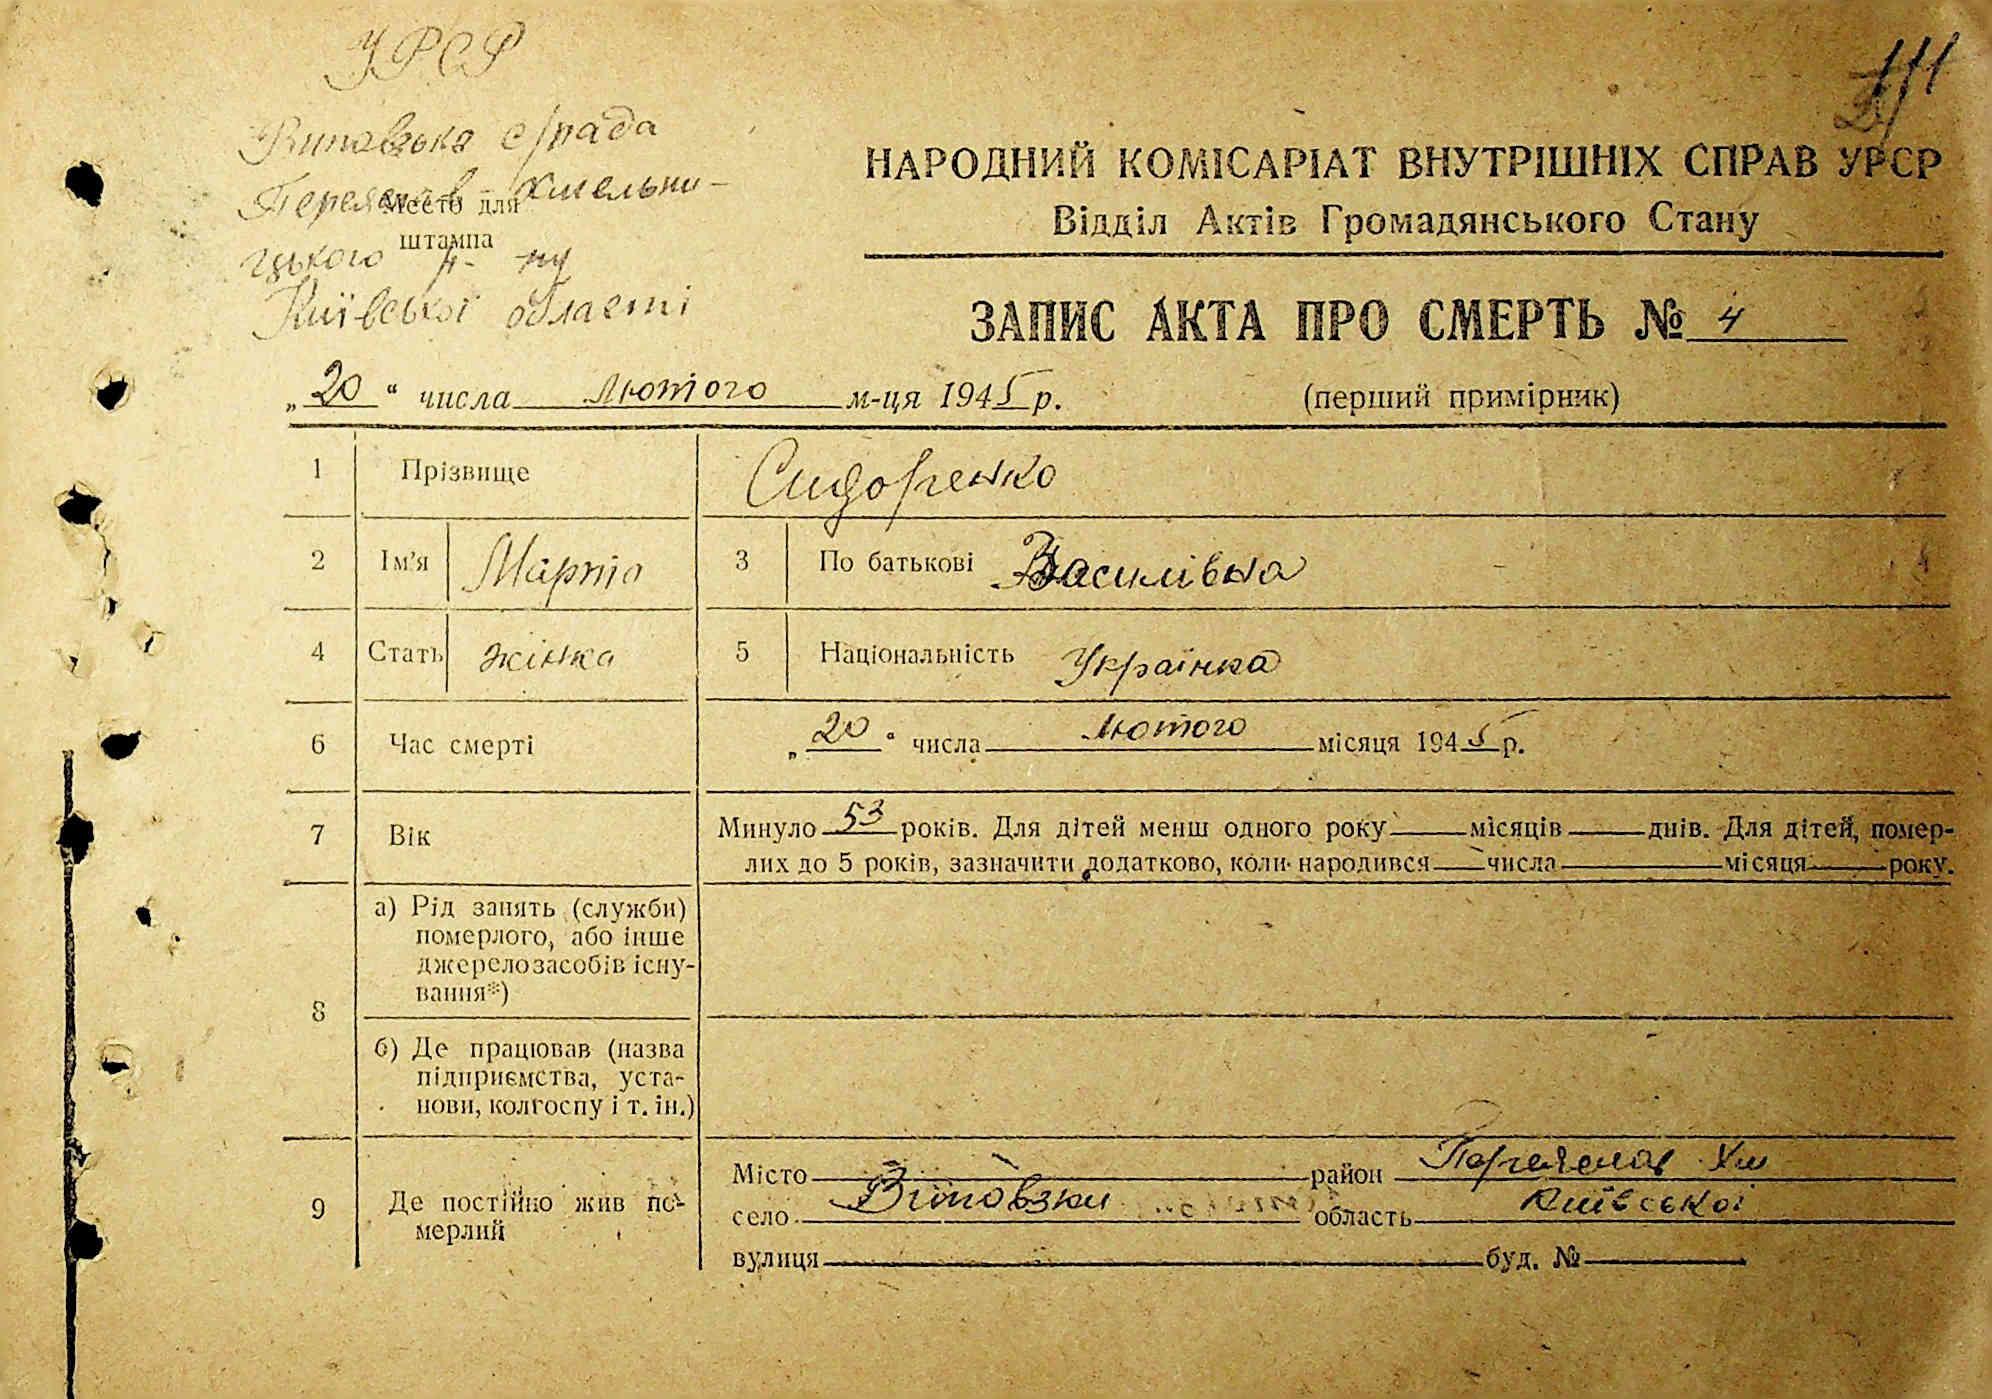 УРСР
Виповзька с/рада
Переяслав-Хмельни-
Место для
штампа
цького р-ну
Київської області
111
НАРОДНИЙ КОМІСАРІАТ ВНУТРІШНІХ СПРАВ УРСР
Відділ Актів Громадянського Стану
ЗАПИС АКТА ПРО СМЕРТЬ № 4
„20“ числа лютого м-ця 1945 р. (перший примірник)
1 Прізвище Сидоренко
2 Ім’я Марта 3 По батькові Василівна
4 Стать жінка 5 Національність Українка
6 Час смерті „20“ числа лютого місяця 1945 р.
7 Вік Минуло 53 років. Для дітей менш одного року місяців днів. Для дітей, помер-
лих до 5 років, зазначити додатково, коли народився числа місяця року.
8 а) Рід занять (служби)
померлого, або інше
джерело засобів існу-
вання*)
б) Де працював (назва
підприємства, уста-
нови, колгоспу і т. ін.)
9 Де постійно жив по-
мерлий
Місто район Переяслав Хм
село Віповзки область Київської
вулиця буд. №